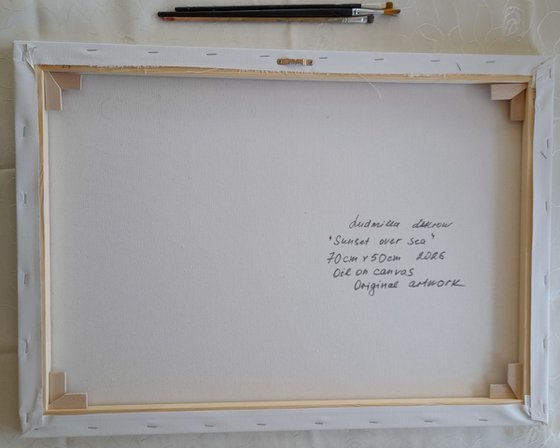 Ludmilla
"Sunset over sea"
70cm x 50cm 2026
Oil on canvas
Original artwork